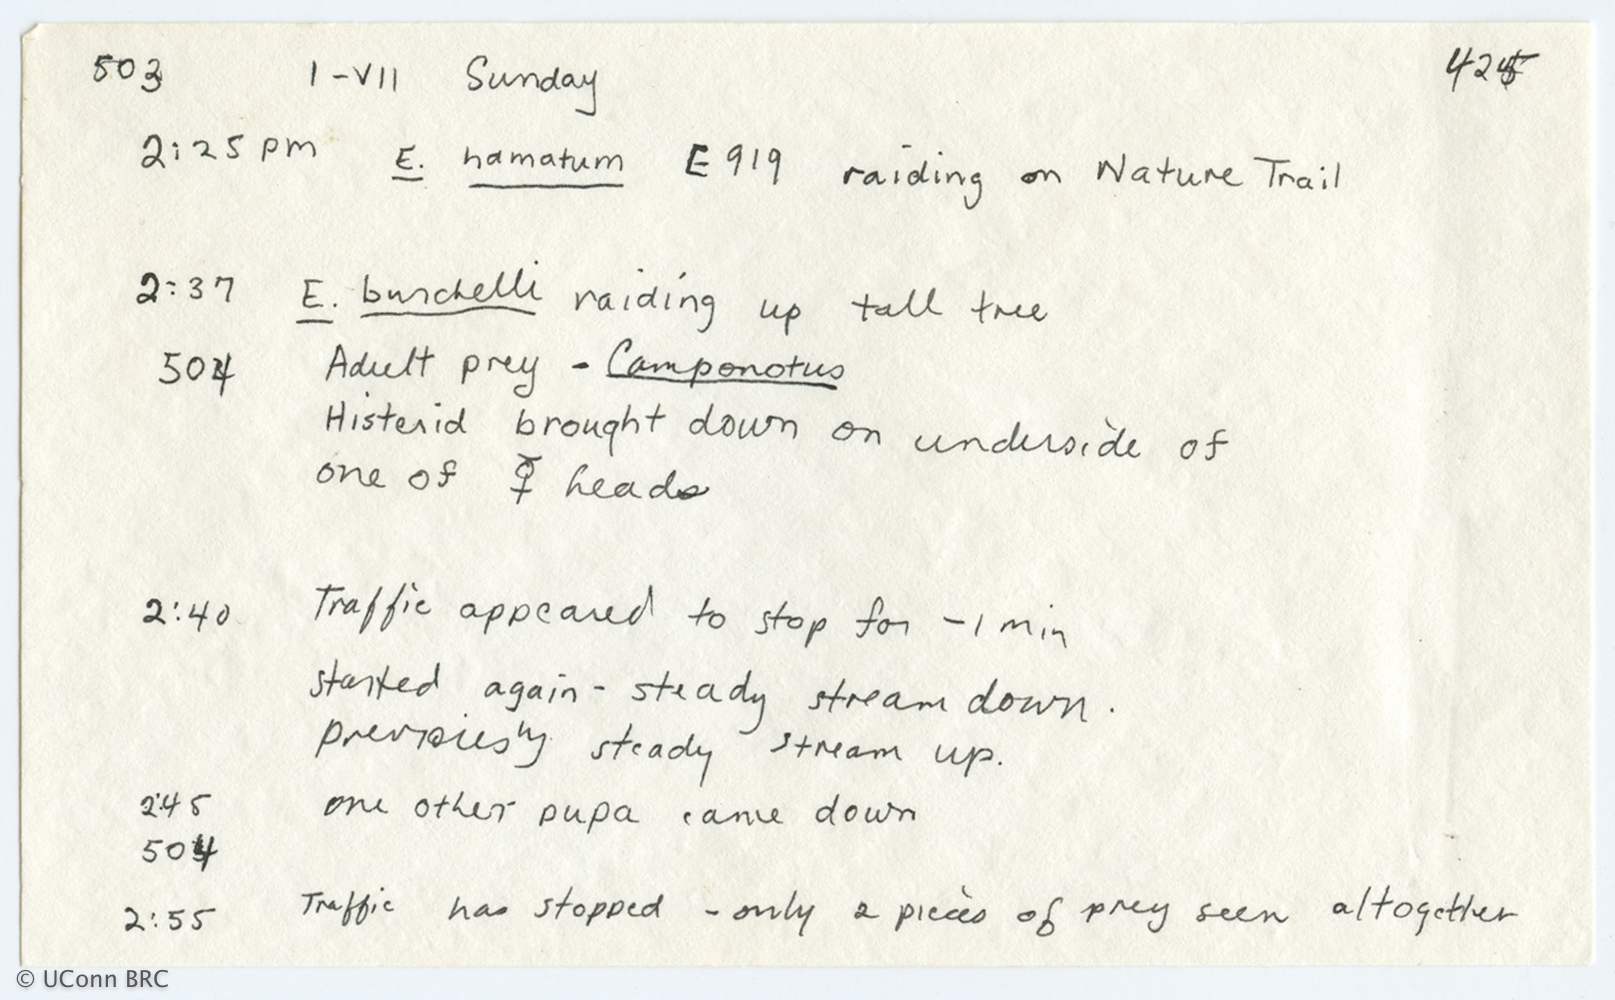 503 1-VII Sunday 425
2:25 pm E. hamatum E919 raiding on Nature Trail
2:37 E. burchelli raiding up tall tree
504 Adult prey - Camponotus
Histerid brought down on underside of
one of ☿ heads
2:40 Traffic appeared to stop for ~1 min
started again - steady stream down.
previously steady stream up.
2:45 one other pupa came down
504
2:55 Traffic has stopped - only 2 pieces of prey seen altogether
© UConn BRC